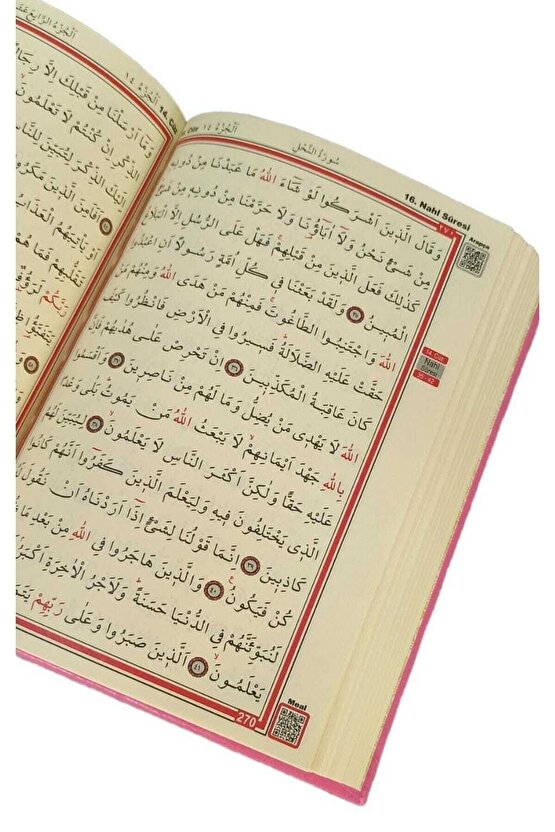 سُورَةُ النَّحْلِ
اَلْجُزْءُ ١٤
16. Nahl Sûresi
٢٧٠
Arapça
وَقَالَ الَّذٖينَ اَشْرَكُوا لَوْ شَٓاءَ اللّٰهُ مَا عَبَدْنَا مِنْ دُونِهٖ
مِنْ شَيْءٍ نَحْنُ وَلَٓا اٰبَٓاؤُ۬نَا وَلَا حَرَّمْنَا مِنْ دُونِهٖ مِنْ شَيْءٍ
كَذٰلِكَ فَعَلَ الَّذٖينَ مِنْ قَبْلِهِمْ فَهَلْ عَلَى الرُّسُلِ اِلَّا الْبَلَاغُ
الْمُبٖينُ ﴿٣٥﴾ وَلَقَدْ بَعَثْنَا فٖي كُلِّ اُمَّةٍ رَسُولًا اَنِ اعْبُدُوا
اللّٰهَ وَاجْتَنِبُوا الطَّاغُوتَ فَمِنْهُمْ مَنْ هَدَى اللّٰهُ وَمِنْهُمْ مَنْ
حَقَّتْ عَلَيْهِ الضَّلَالَةُ فَسٖيرُوا فِي الْاَرْضِ فَانْظُرُوا كَيْفَ
كَانَ عَاقِبَةُ الْمُكَذِّبٖينَ ﴿٣٦﴾ اِنْ تَحْرِصْ عَلٰى هُدٰيهُمْ فَاِنَّ
اللّٰهَ لَا يَهْدٖي مَنْ يُضِلُّ وَمَا لَهُمْ مِنْ نَاصِرٖينَ ﴿٣٧﴾ وَاَقْسَمُوا
بِاللّٰهِ جَهْدَ اَيْمَانِهِمْ لَا يَبْعَثُ اللّٰهُ مَنْ يَمُوتُ بَلٰى وَعْدًا
عَلَيْهِ حَقًّا وَلٰكِنَّ اَكْثَرَ النَّاسِ لَا يَعْلَمُونَ ﴿٣٨﴾ لِيُبَيِّنَ لَهُمُ
الَّذٖي يَخْتَلِفُونَ فٖيهِ وَلِيَعْلَمَ الَّذٖينَ كَفَرُٓوا اَنَّهُمْ كَانُوا
كَاذِبٖينَ ﴿٣٩﴾ اِنَّمَا قَوْلُنَا لِشَيْءٍ اِذَٓا اَرَدْنَاهُ اَنْ نَقُولَ لَهُ
كُنْ فَيَكُونُ ﴿٤٠﴾ وَالَّذٖينَ هَاجَرُوا فِي اللّٰهِ مِنْ بَعْدِ مَا
لَنُبَوِّئَنَّهُمْ فِي الدُّنْيَا حَسَنَةً وَلَاَجْرُ الْاٰخِرَةِ اَكْبَرُ
يَعْلَمُونَ ﴿٤١﴾ اَلَّذٖينَ صَبَرُوا وَعَلٰى رَبِّهِمْ
14. Cüz
Nahl
Sûresi
35 - 42
270
Meal
اَلْجُزْءُ الرَّابِعَ
14. Cüz
اَلْجُزْءُ ١٤
وَمَٓا اَرْسَلْنَا مِنْ قَبْلِكَ اِلَّا رِجَالًا
الذِّكْرِ اِنْ كُنْتُمْ لَا تَعْلَمُونَ
اِلَيْكَ الذِّكْرَ لِتُبَيِّنَ لِلنَّاسِ
اَفَاَمِنَ الَّذٖينَ مَكَرُوا
اَوْ يَأْتِيَهُمُ الْعَذَابُ
تَقَلُّبِهِمْ فَمَا هُمْ
رَبَّكُمْ لَرَؤُ۫فٌ